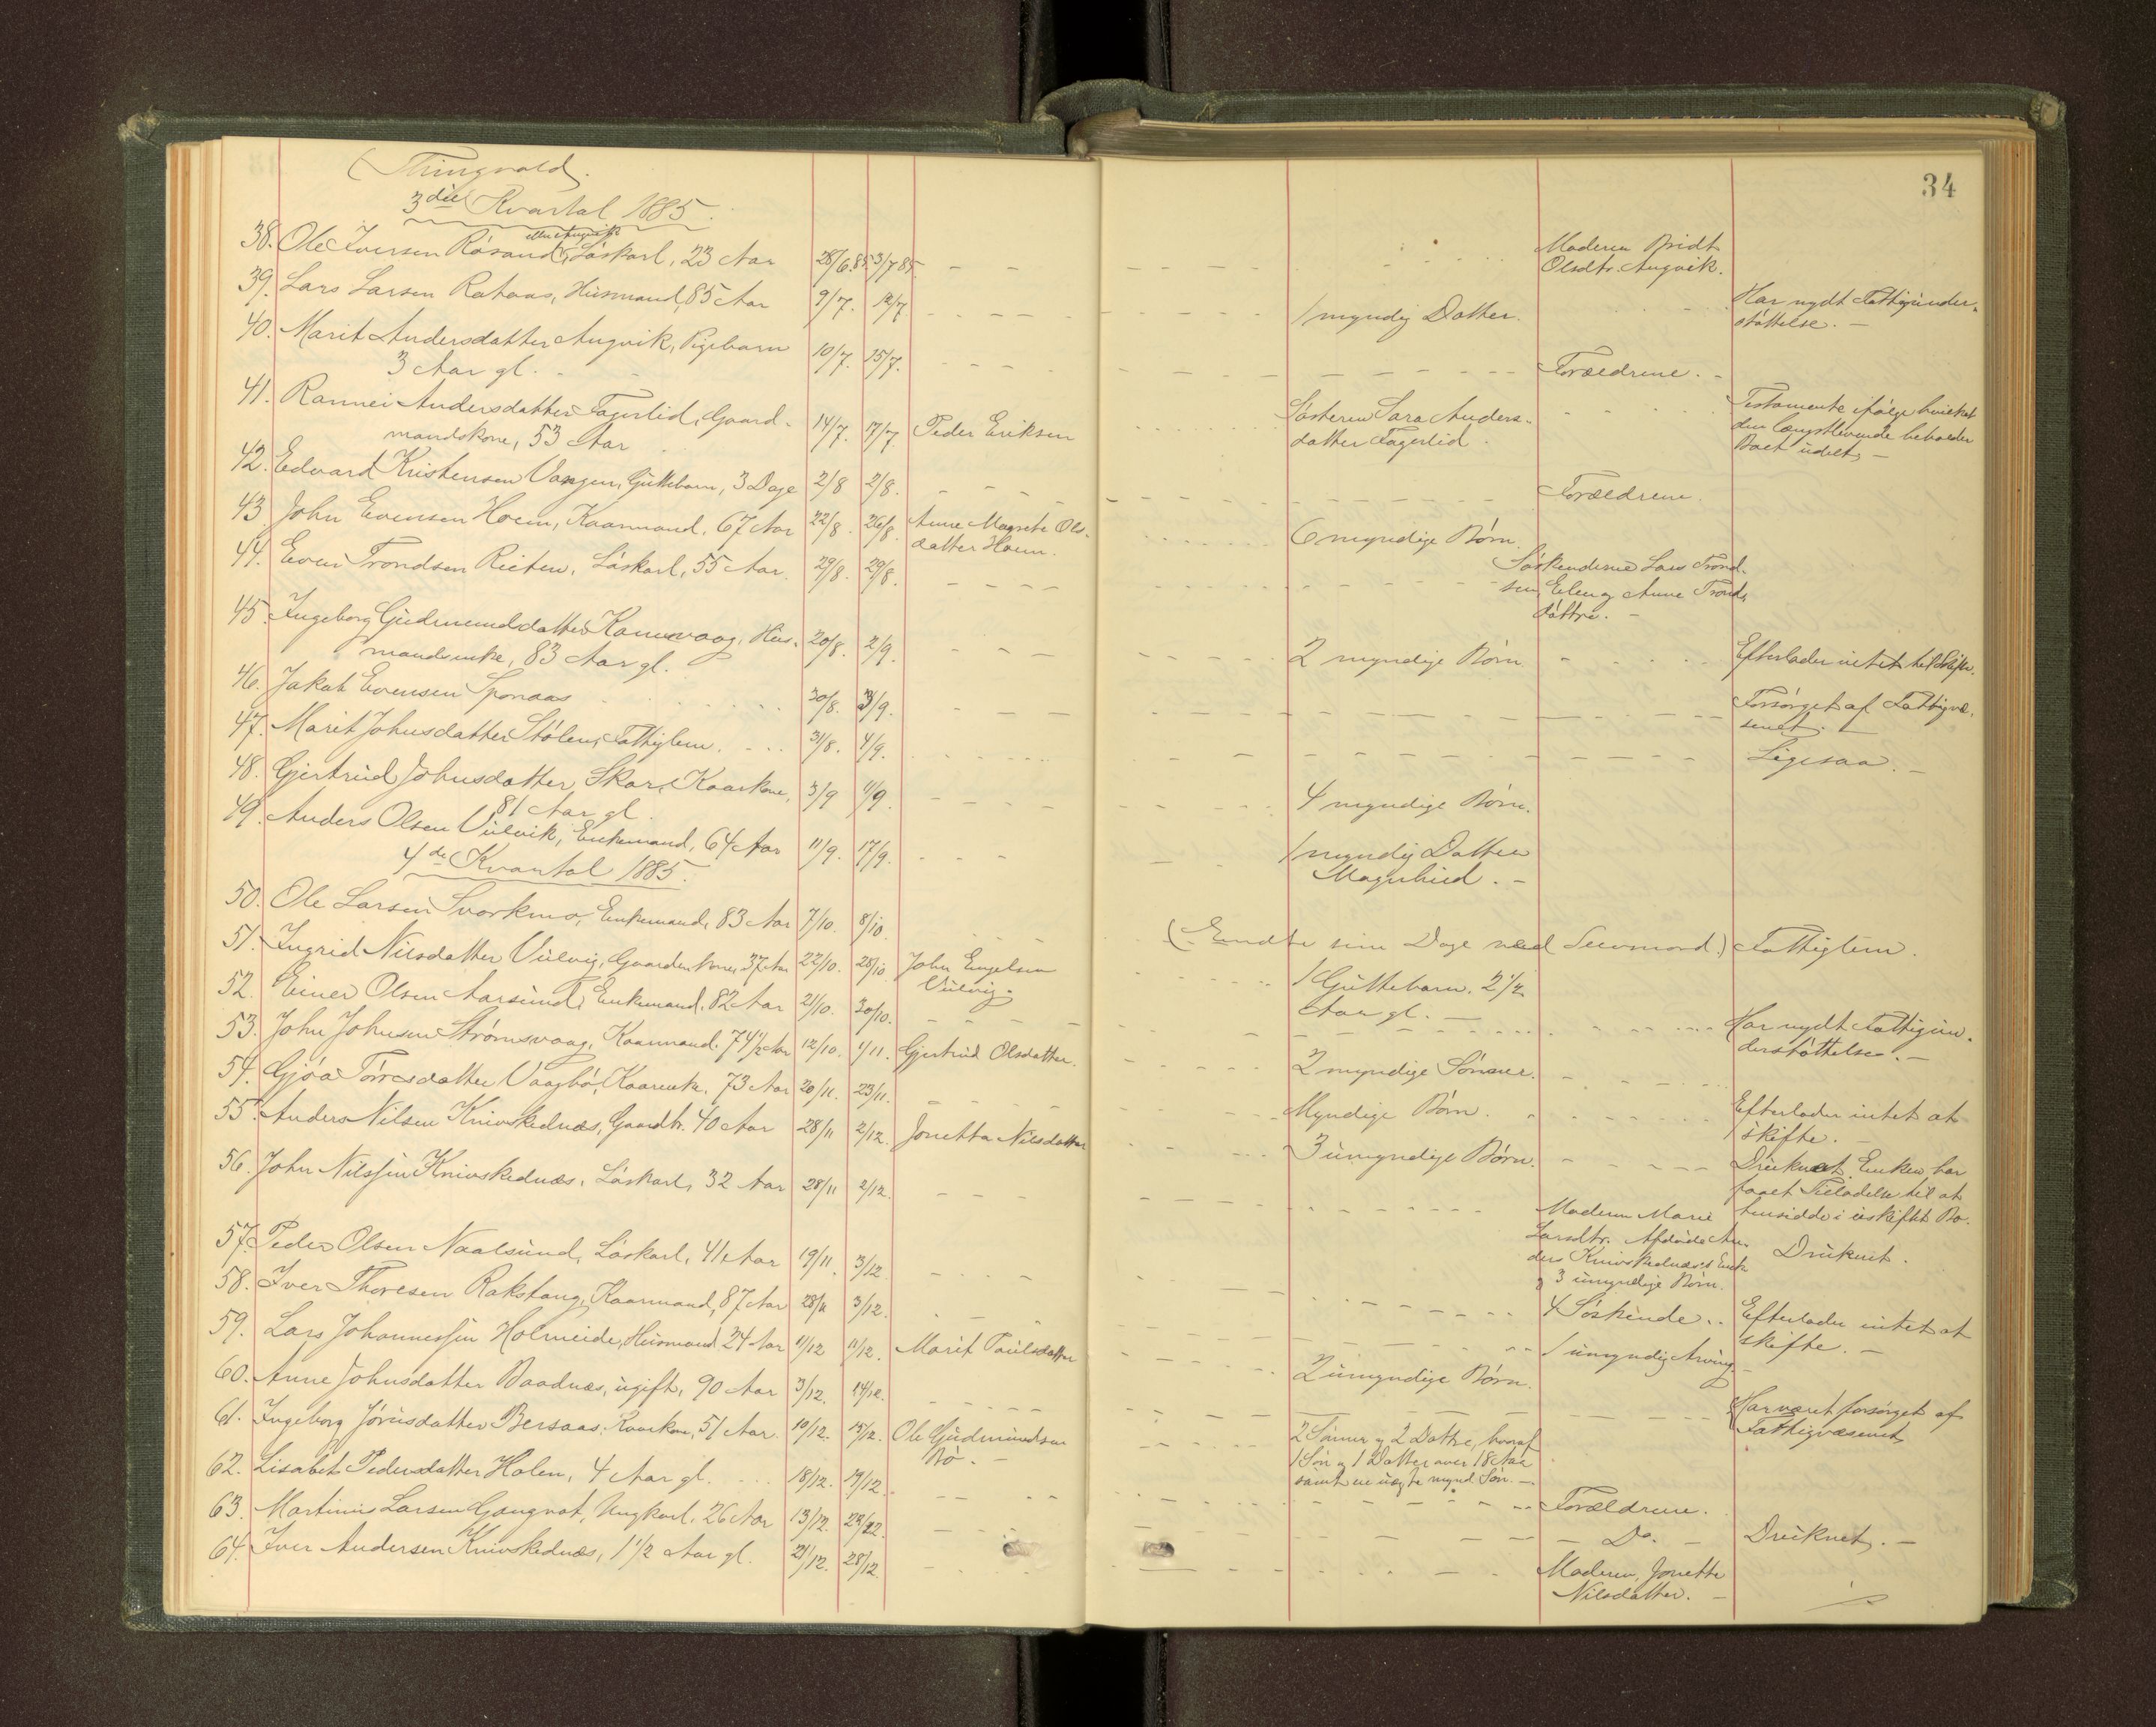 34
(Thingvold).
3die Kvartal 1885.
38. Ole Iversen Rösand, eller Angvik, Löskarl, 23 Aar 28/6 85 3/7 85. Moderen Bridt
Olsdtr. Angvik.
39. Lars Larsen Rataas, Husmand, 85 Aar 9/7. 12/7 1 myndig Datter. Har nydt Fattigunder-
støttelse. —
40. Marit Andersdatter Angvik, Pigebarn
3 Aar gl. 10/7. 15/7. Forældrene.
41. Rannei Andersdatter Fagerlid, Gaard-
mandskone, 53 Aar 14/7. 17/7. Peder Eriksen Søsteren Sara Anders-
datter Fagerlid. Testamente ifølge hvilket
den længstlevende beholder
Boet udelt. —
42. Edvard Kristensen Vangen, Guttebarn, 3 Dage 2/8 2/8. Forældrene.
43. John Evensen Hoem, Kaarmand, 67 Aar 22/8. 26/8. Anne Magrete Ols-
datter Hoem. 6 myndige Börn.
44. Even Trondsen Rieten, Löskarl, 55 Aar. 29/8. 29/8. Söskenderne Lars Trond-
sen, Elen og Anne Tronds
døttre. —
45. Ingeborg Gudmundsdatter Kanesvaag, Hus-
mandsenke, 83 Aar gl. 20/8. 2/9. 2 myndige Börn Efterlader intet til Skifte.
46. Jakob Evensen Sponaas 30/8. 3/9. Forsörget af Fattigvæ-
senet.
47. Marit Johnsdatter Stölen, Fattiglem. 31/8. 4/9. Ligesaa. —
48. Gjertrud Johnsdatter Skar, Kaarkone,
81 Aar gl. 3/9 11/9. 4 myndige Börn.
49. Anders Olsen Ulvik, Enkemand, 64 Aar 11/9. 17/9. 1 myndig Datter
Magnhild. —
4de Kvartal 1885.
50. Ole Larsen Svorkmo, Enkemand, 83 Aar 7/10. 8/10. (Endte sine Dage ved Selvmord.) Fattiglem.
51. Ingrid Nilsdatter Ulvig, Gaardm.kone, 37 Aar 22/10. 28/10 John Engelsen
Ulvig. 1 Guttebarn. 2 1/2
Aar gl. —
52. Einer Olsen Aarsund, Enkemand, 82 Aar 21/10. 30/10. Har nydt Fattigun-
derstøttelse. —
53. John Johnsen Strömsvaag, Kaarmand. 74 1/2 Aar 12/10. 1/11. Gjertrud Olsdatter. 2 myndige Sönner.
54. Gjöa Torresdatter Vaagbö, Kaarenke. 73 Aar 20/11. 23/11. Myndige Börn. Efterlader intet at
skifte. —
55. Anders Nilsen Knivskednæs, Gaardbr. 40 Aar 28/11 2/12. Jonetta Nilsdatter 3 umyndige Börn. Druknet. Enken har
faaet Tilladelse til at
hensidde i uskiftet Bo.
56. John Nilssen Knivskednæs, Löskarl, 32 Aar 28/11 2/12. Moderen Marie
Larsdtr. Afdøde An-
ders Knivskednæs's Enke
og 3 umyndige Börn. Druknet.
57. Peder Olsen Naalsund, Löskarl, 41 Aar 19/11. 3/12. 4 Söskende. Efterlader intet at
skifte. —
58. Iver Thoresen Rakstang, Kaarmand, 87 Aar 28/11 3/12. 1 umyndig Arving.
59. Lars Johannessen Holmeide, Husmand 24 Aar 11/12 11/12. Marit Paulsdatter 2 umyndige Börn.
60. Anne Johnsdatter Baadnæs, ugift, 90 Aar 3/12. 14/12. Har været forsörget af
Fattigvæsenet
61. Ingeborg Jörusdatter Bersaas. Kaarkone, 51 Aar. 10/12. 15/12. Ole Gudmundsen
Bö. — 2 Sønner og 2 Dottre, hvoraf
1 Søn og 1 Datter over 18 Aar
samt en uægte mynd. Søn. —
62. Lisabet Pedersdatter Holen, 4 Aar gl. 18/12. 19/12. Forældrene.
63. Martinus Larsen Gangnat, Ungkarl. 26 Aar 13/12. 22/12. Do. Druknet. —
64. Iver Andersen Knivskednæs, 1 1/2 Aar gl. 21/12. 28/12. Moderen, Jonette
Nilsdatter. —